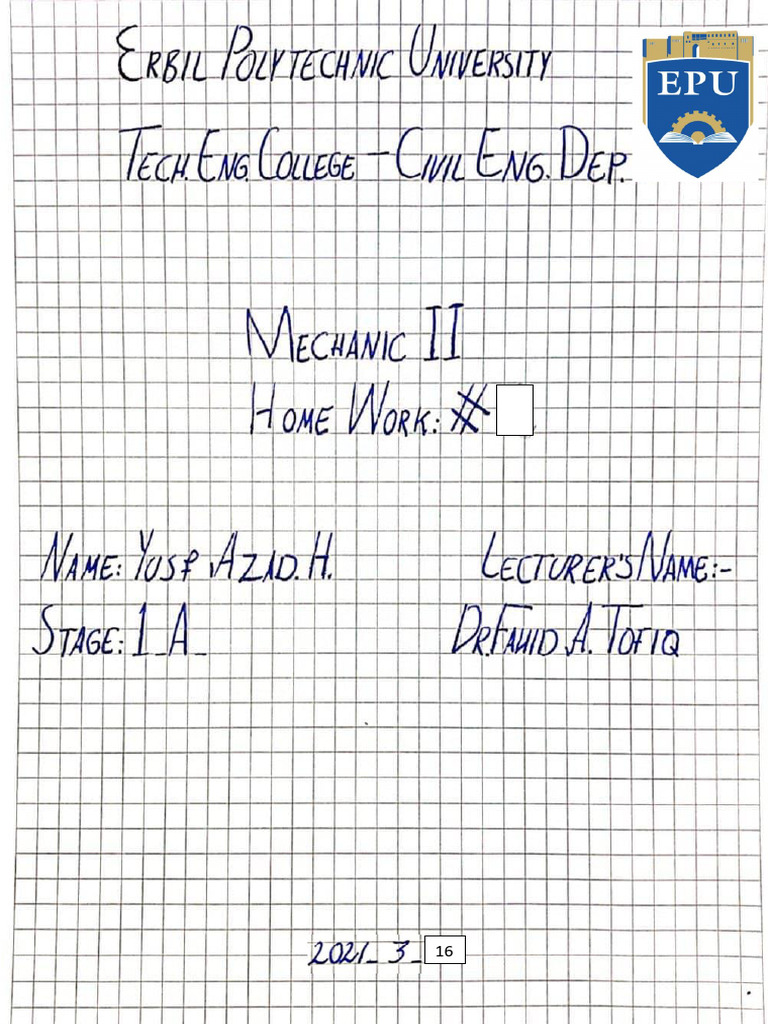 Erbil Polytechnic University
EPU
Tech. Eng. College – Civil Eng. Dep.
Mechanic II
Home Work: #
Name: Yusf Azad. H.
Lecturer's Name:-
Stage: 1_A_
Dr. Fahid A. Tofiq
2021_3_16